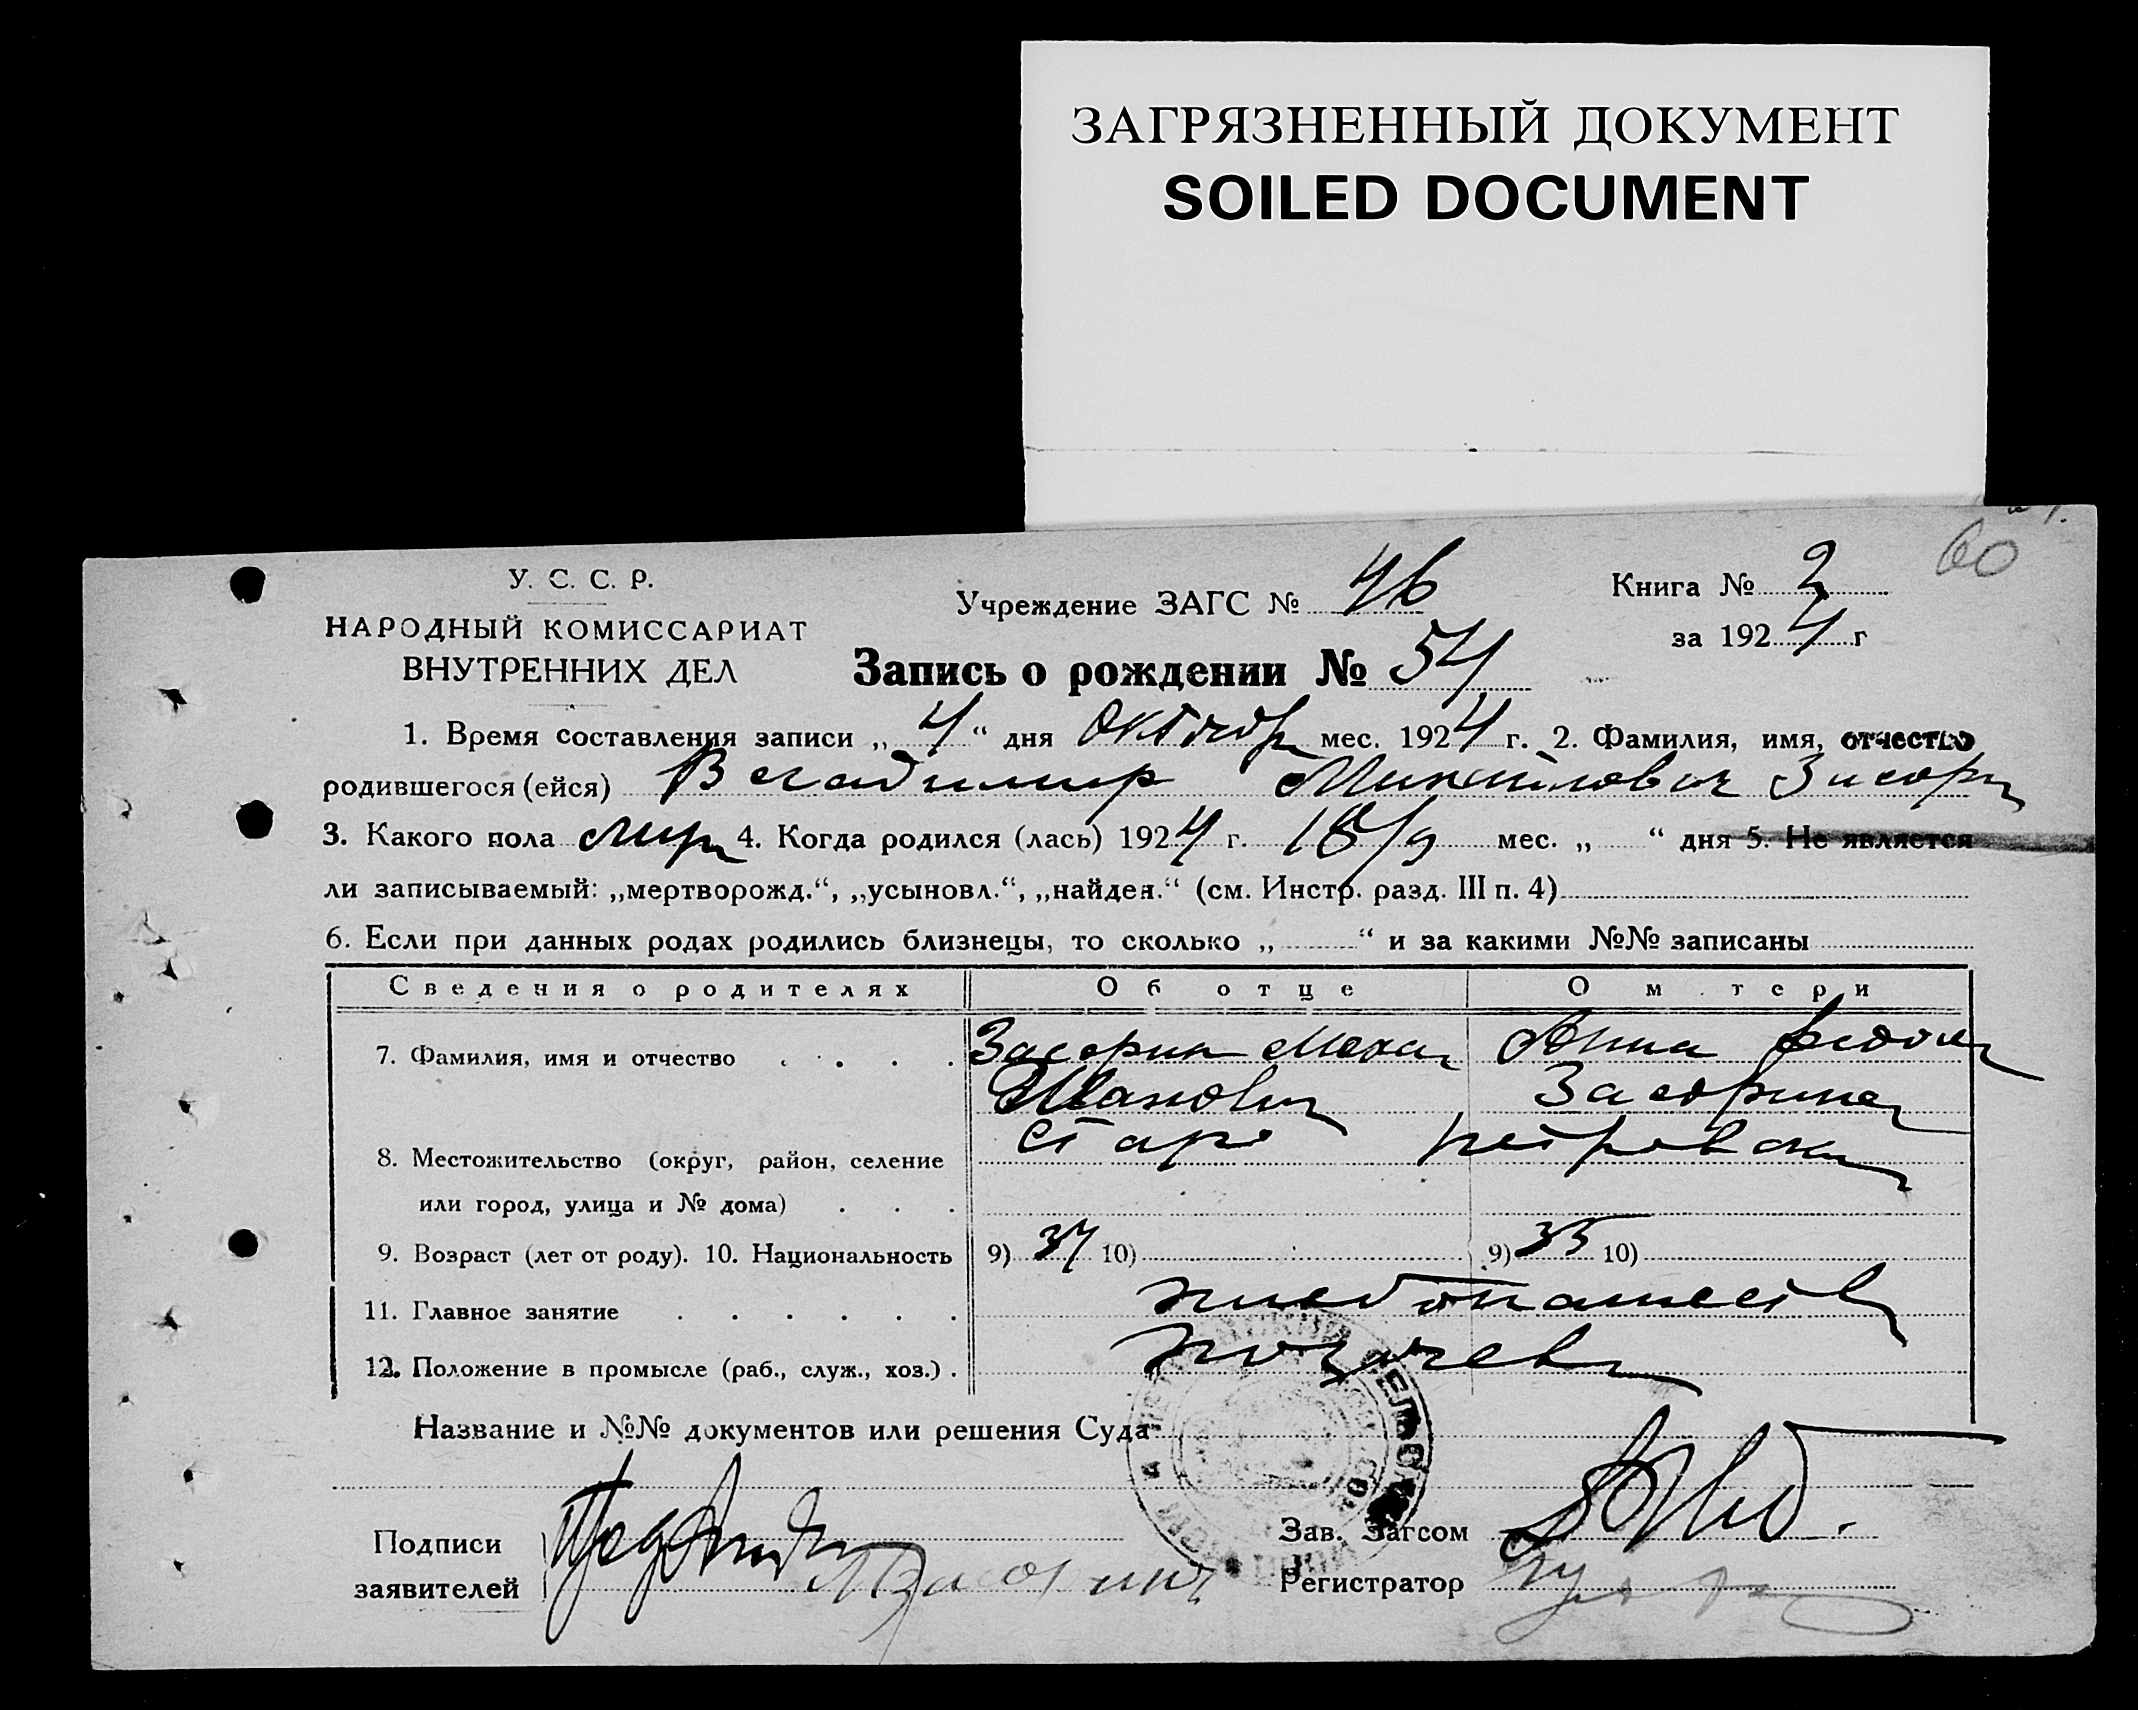 ЗАГРЯЗНЕННЫЙ ДОКУМЕНТ
SOILED DOCUMENT
60
У. С. С. Р.
НАРОДНЫЙ КОМИССАРИАТ
ВНУТРЕННИХ ДЕЛ
Учреждение ЗАГС № 46
Книга № 2
за 1924 г
Запись о рождении № 54
1. Время составления записи „4“ дня Октябр мес. 1924 г. 2. Фамилия, имя, отчество
родившегося (ейся) Владимир Михайлович Засорин
3. Какого пола муж 4. Когда родился (лась) 1924 г. 18/9 мес. „ “ дня 5. Не является
ли записываемый: „мертворожд.“, „усыновл.“, „найден.“ (см. Инстр. разд. III п. 4)
6. Если при данных родах родились близнецы, то сколько „ “ и за какими №№ записаны
Сведения о родителях Об отце О м тери
7. Фамилия, имя и отчество Засорин Анна
Засорина
8. Местожительство (округ, район, селение Старо Петровка
или город, улица и № дома)
9. Возраст (лет от роду). 10. Национальность 9) 37 10) 9) 35 10)
11. Главное занятие хлебопашеств
12. Положение в промысле (раб., служ., хоз.)
Название и №№ документов или решения Суда
Подписи
заявителей
Зав. Загсом
Регистратор